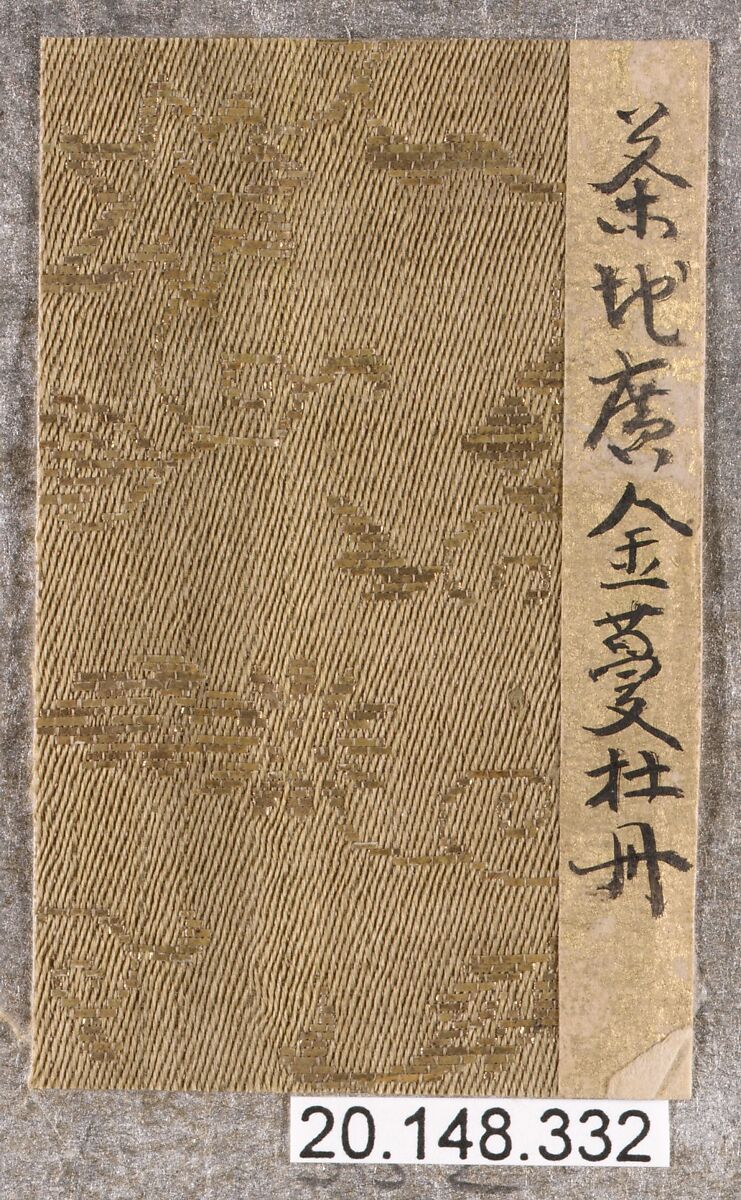 茶地廣金蔓杜丹
20.148.332